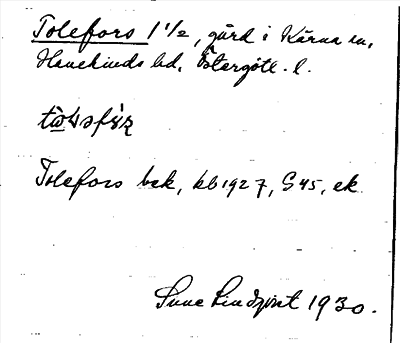 Tolefors 1 1/2, gård i Kärna sn,
Hanekinds hd, Östergötl. l.
Tolefors bek, kb 1927, S 45, ek
Sune Lindqvist 1930.